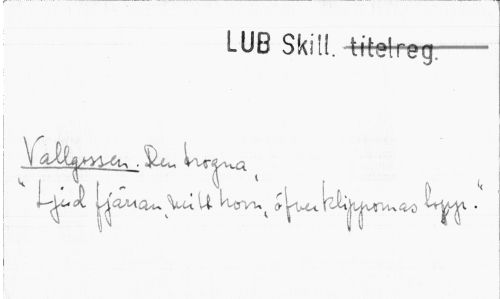 LUB Skill. titelreg.
Vallgossen. Den trogna,
"Ljud fjärran, mitt horn, öfver klippornas topp."